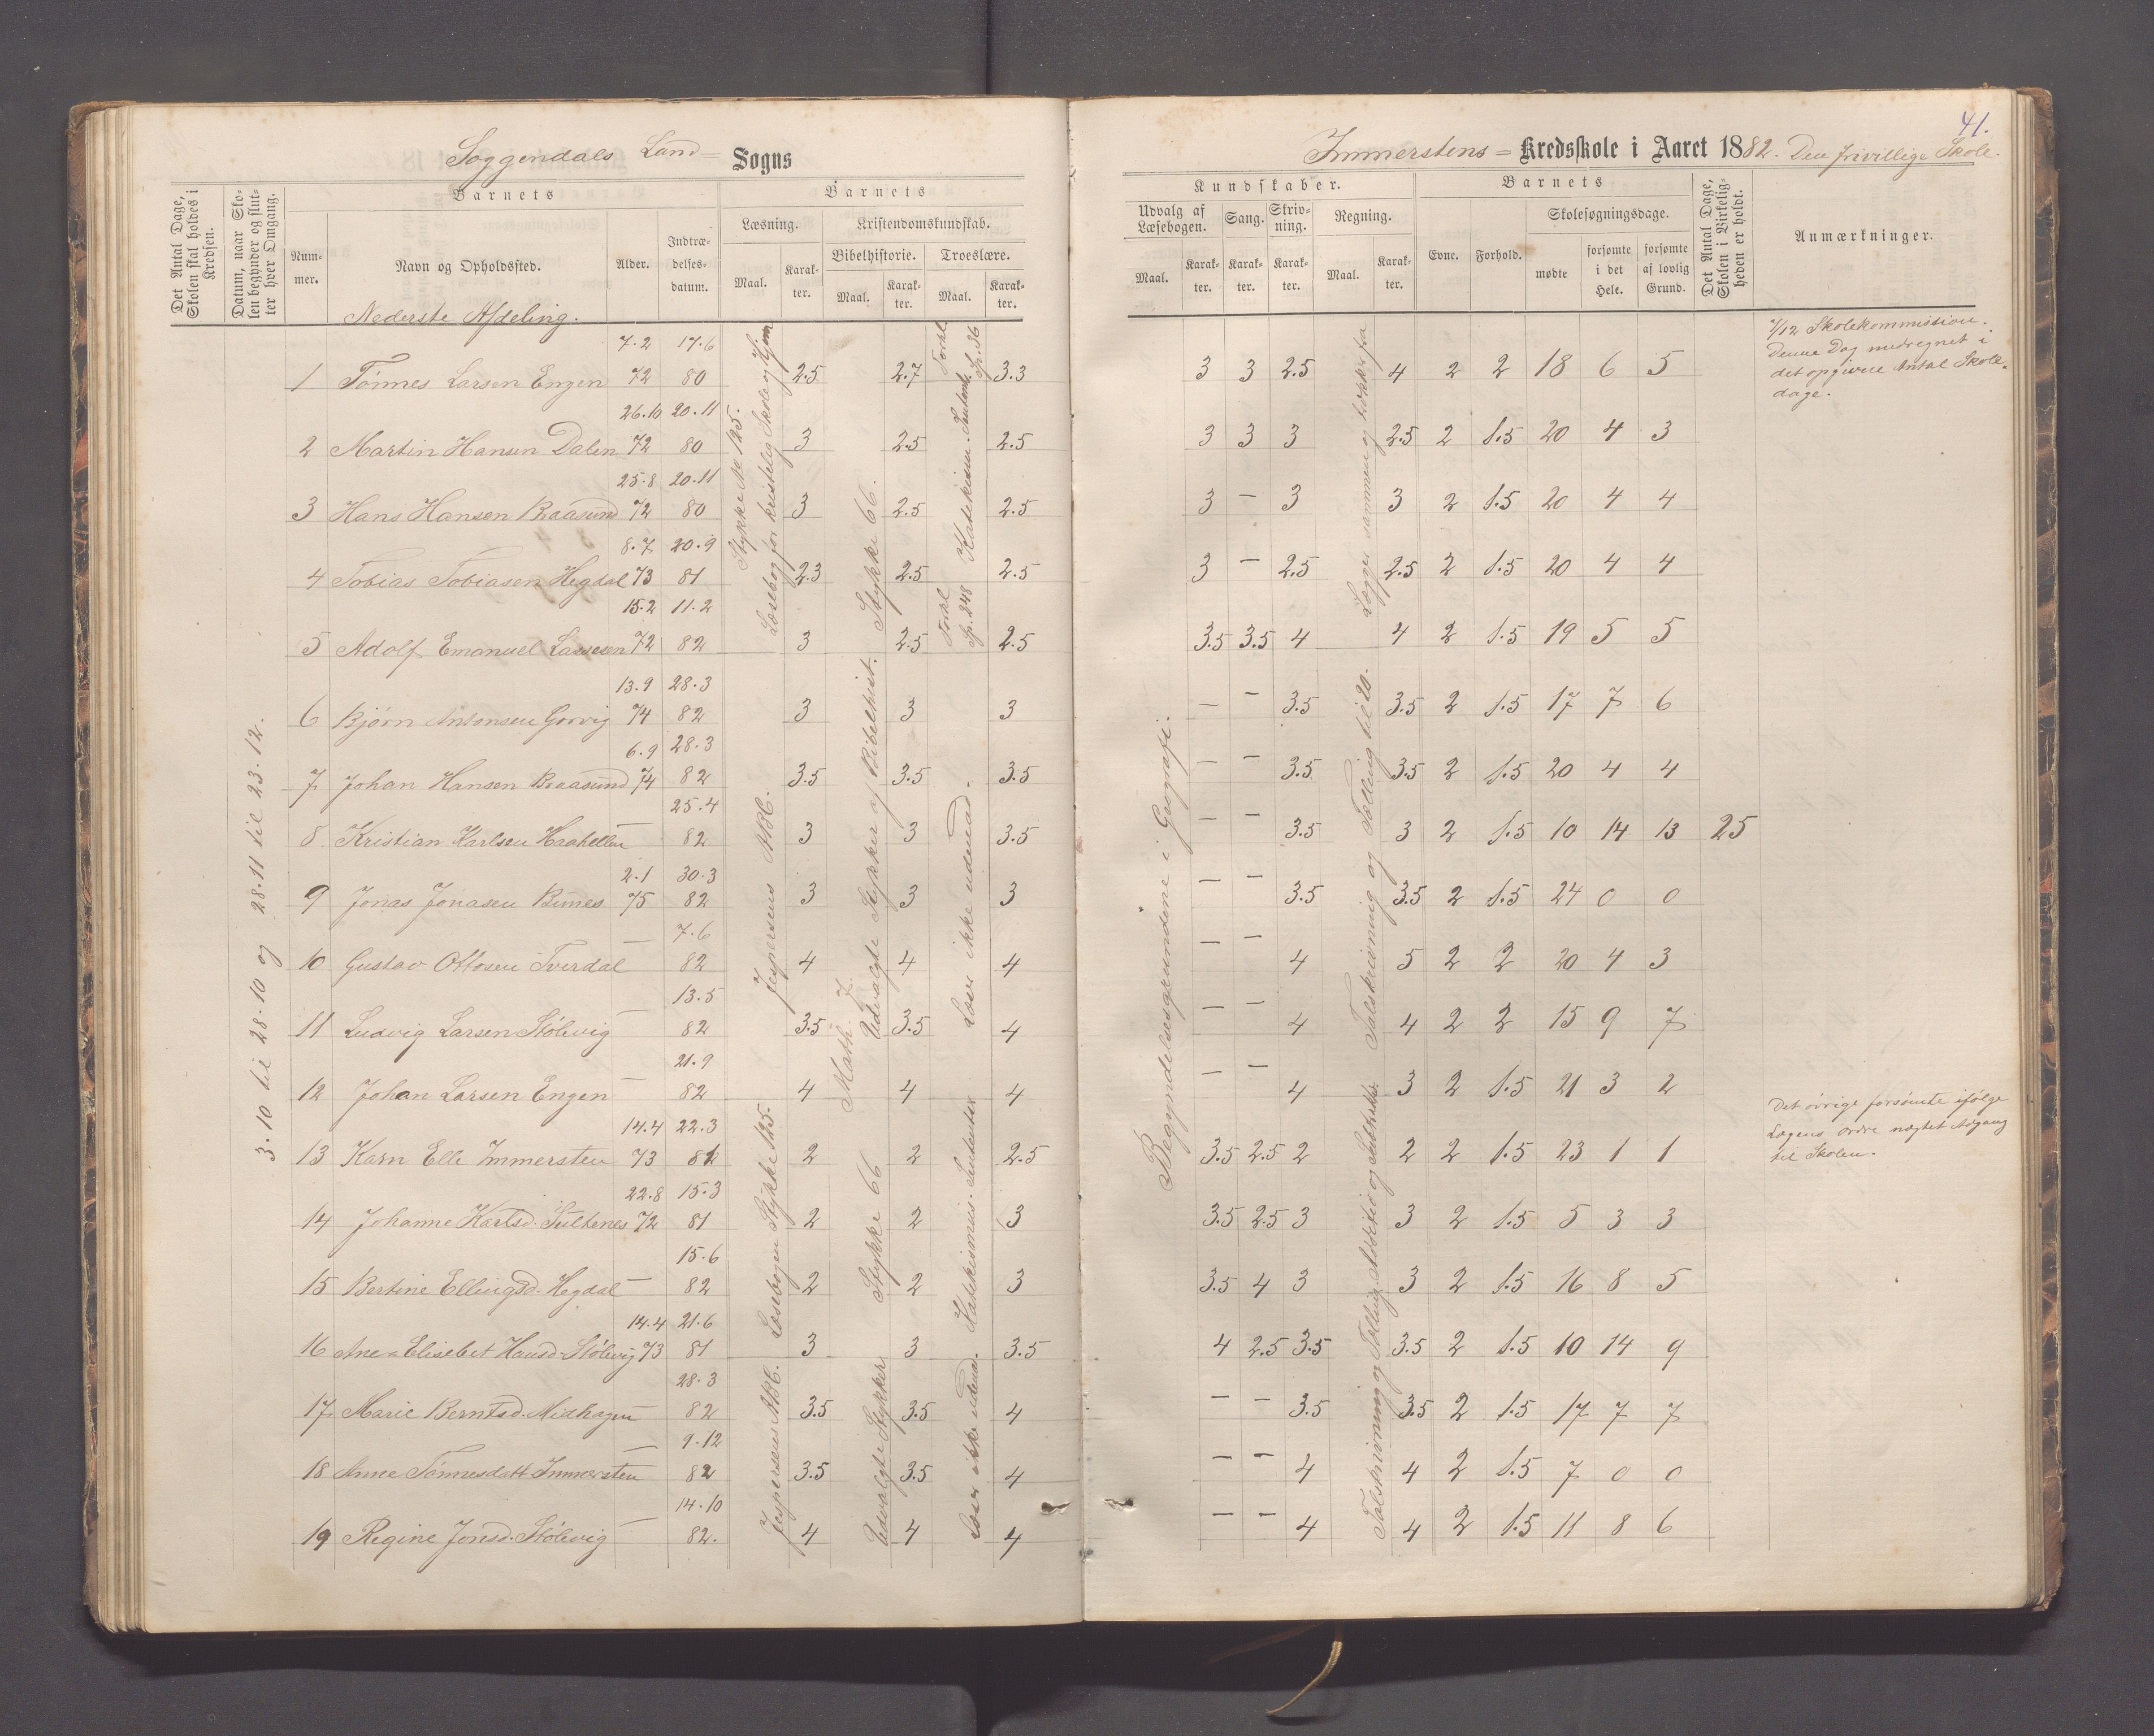 41.
Soggendals Land= Sogns
Immerstens = Kredsskole i Aaret 1882. Den frivillige Skole.
Det Antal Dage, Skolen skal holdes i Kredsen.
Datum, naar Skolen begynder og slutter hver Omgang.
Barnets
Nummer.
Navn og Opholdssted.
Alder.
Indtrædelsesdatum.
Barnets
Læsning.
Maal.
Karakter.
Kristendomskundskab.
Bibelhistorie.
Maal.
Karakter.
Troeslære.
Maal.
Karakter.
Kundskaber.
Udvalg af Læsebogen.
Maal.
Karakter.
Sang.
Karakter.
Skrivning.
Karakter.
Regning.
Maal.
Karakter.
Barnets
Evne.
Forhold.
Skolesøgningsdage.
mødte
forsømte i det Hele.
forsømte af lovlig Grund.
Det Antal Dage, Skolen i Virkeligheden er holdt.
Anmærkninger.
Nederste Afdeling.
3.10 til 28.10 og 28.11 til 23.12.
7.2 17.6
1 Tønnes Larsen Engen 72 80 2.5 2.7 3.3 3 3 2.5 4 2 2 18 6 5
26.10 20.11
2 Martin Hansen Dalen 72 80 3 2.5 2.5 3 3 3 2.5 2 1.5 20 4 3
25.8 20.11
3 Hans Hansen Raasund 72 80 3 2.5 2.5 3 — 3 3 2 1.5 20 4 4
8.7 20.9
4 Tobias Tobiasen Hegdal 73 81 2.3 2.5 2.5 3 — 2.5 2.5 2 1.5 20 4 4
15.2 11.2
5 Adolf Emanuel Lassesen 72 82 3 2.5 2.5 3.5 3.5 4 4 2 1.5 19 5 5
13.9 28.3
6 Bjørn Antonsen Gorvig 74 82 3 3 3 — — 3.5 3.5 2 1.5 17 7 6
6.9 28.3
7 Johan Hansen Raasund 74 82 3.5 3.5 3.5 — — 3.5 3.5 2 1.5 20 4 4
25.4
8 Kristian Karlsen Haahellen — 82 3 3 3.5 — — 3.5 3 2 1.5 10 14 13 25
2.1 30.3
9 Jonas Jonasen Bunes 75 82 3 3 3 — — 3.5 3.5 2 1.5 24 0 0
7.6
10 Gustav Ottosen Tverdal — 82 4 4 4 — — 4 5 2 2 20 4 3
13.5
11 Ludvig Larsen Stølevig — 82 3.5 3.5 4 — — 4 4 2 2 15 9 7
21.9
12 Johan Larsen Engen — 82 4 4 4 — — 4 3 2 1.5 21 3 2
14.4 22.3
13 Karn Elle Immersten 73 81 2 2 2.5 3.5 2.5 2 2 2 1.5 23 1 1
22.8 15.3
14 Johanne Karlsd. Sultenes 72 81 2 2 3 3.5 2.5 3 3 2 1.5 5 3 3
15.6
15 Bertine Ellingsd. Hegdal — 82 2 2 3 3.5 4 3 3 2 1.5 16 8 5
14.4 21.6
16 Ane Elisebet Hansd. Stølevig 73 81 3 3 3.5 4 2.5 3.5 3.5 2 1.5 10 14 9
28.3
17 Marie Berntsd. Midhagen — 82 3.5 3.5 4 — — 3.5 3.5 2 1.5 17 7 7
9.12
18 Anne Tønnesdatt Immersten — 82 3.5 3.5 4 — — 4 4 2 1.5 7 0 0
14.10
19 Regine Jonsd. Stølevig — 82. 4 4 4 — — 4 4 2 1.5 11 8 6
Stykke No 125.
Læsebog for kristelig Skole og Hjem
Jespersens ABC.
Læsebogen Stykke 125.
Jespersens ABC.
Udvalgte Stykker af Bibelhist. Stykke 66.
Math. 7.
Stykke 66
Udvalgte Stykker
Forkl. Sp. 36
Forkl Sp. 248
Læser ikke udenad.
Katekismus.
Læser ikke udenad.
Begyndelsesgrundene i Geografi.
Lægger sammen og trækker fra
Talskrivning og Tælling til 20.
Talskrivning og Tælling, Additio og Subtrakt.
7/12 Skolekommission.
Denne Dag medregnet i
det opgivne Antal Skole-
dage.
Det øvrige forsømte ifølge
Lægens Ordre nægtet Adgang
til Skolen.